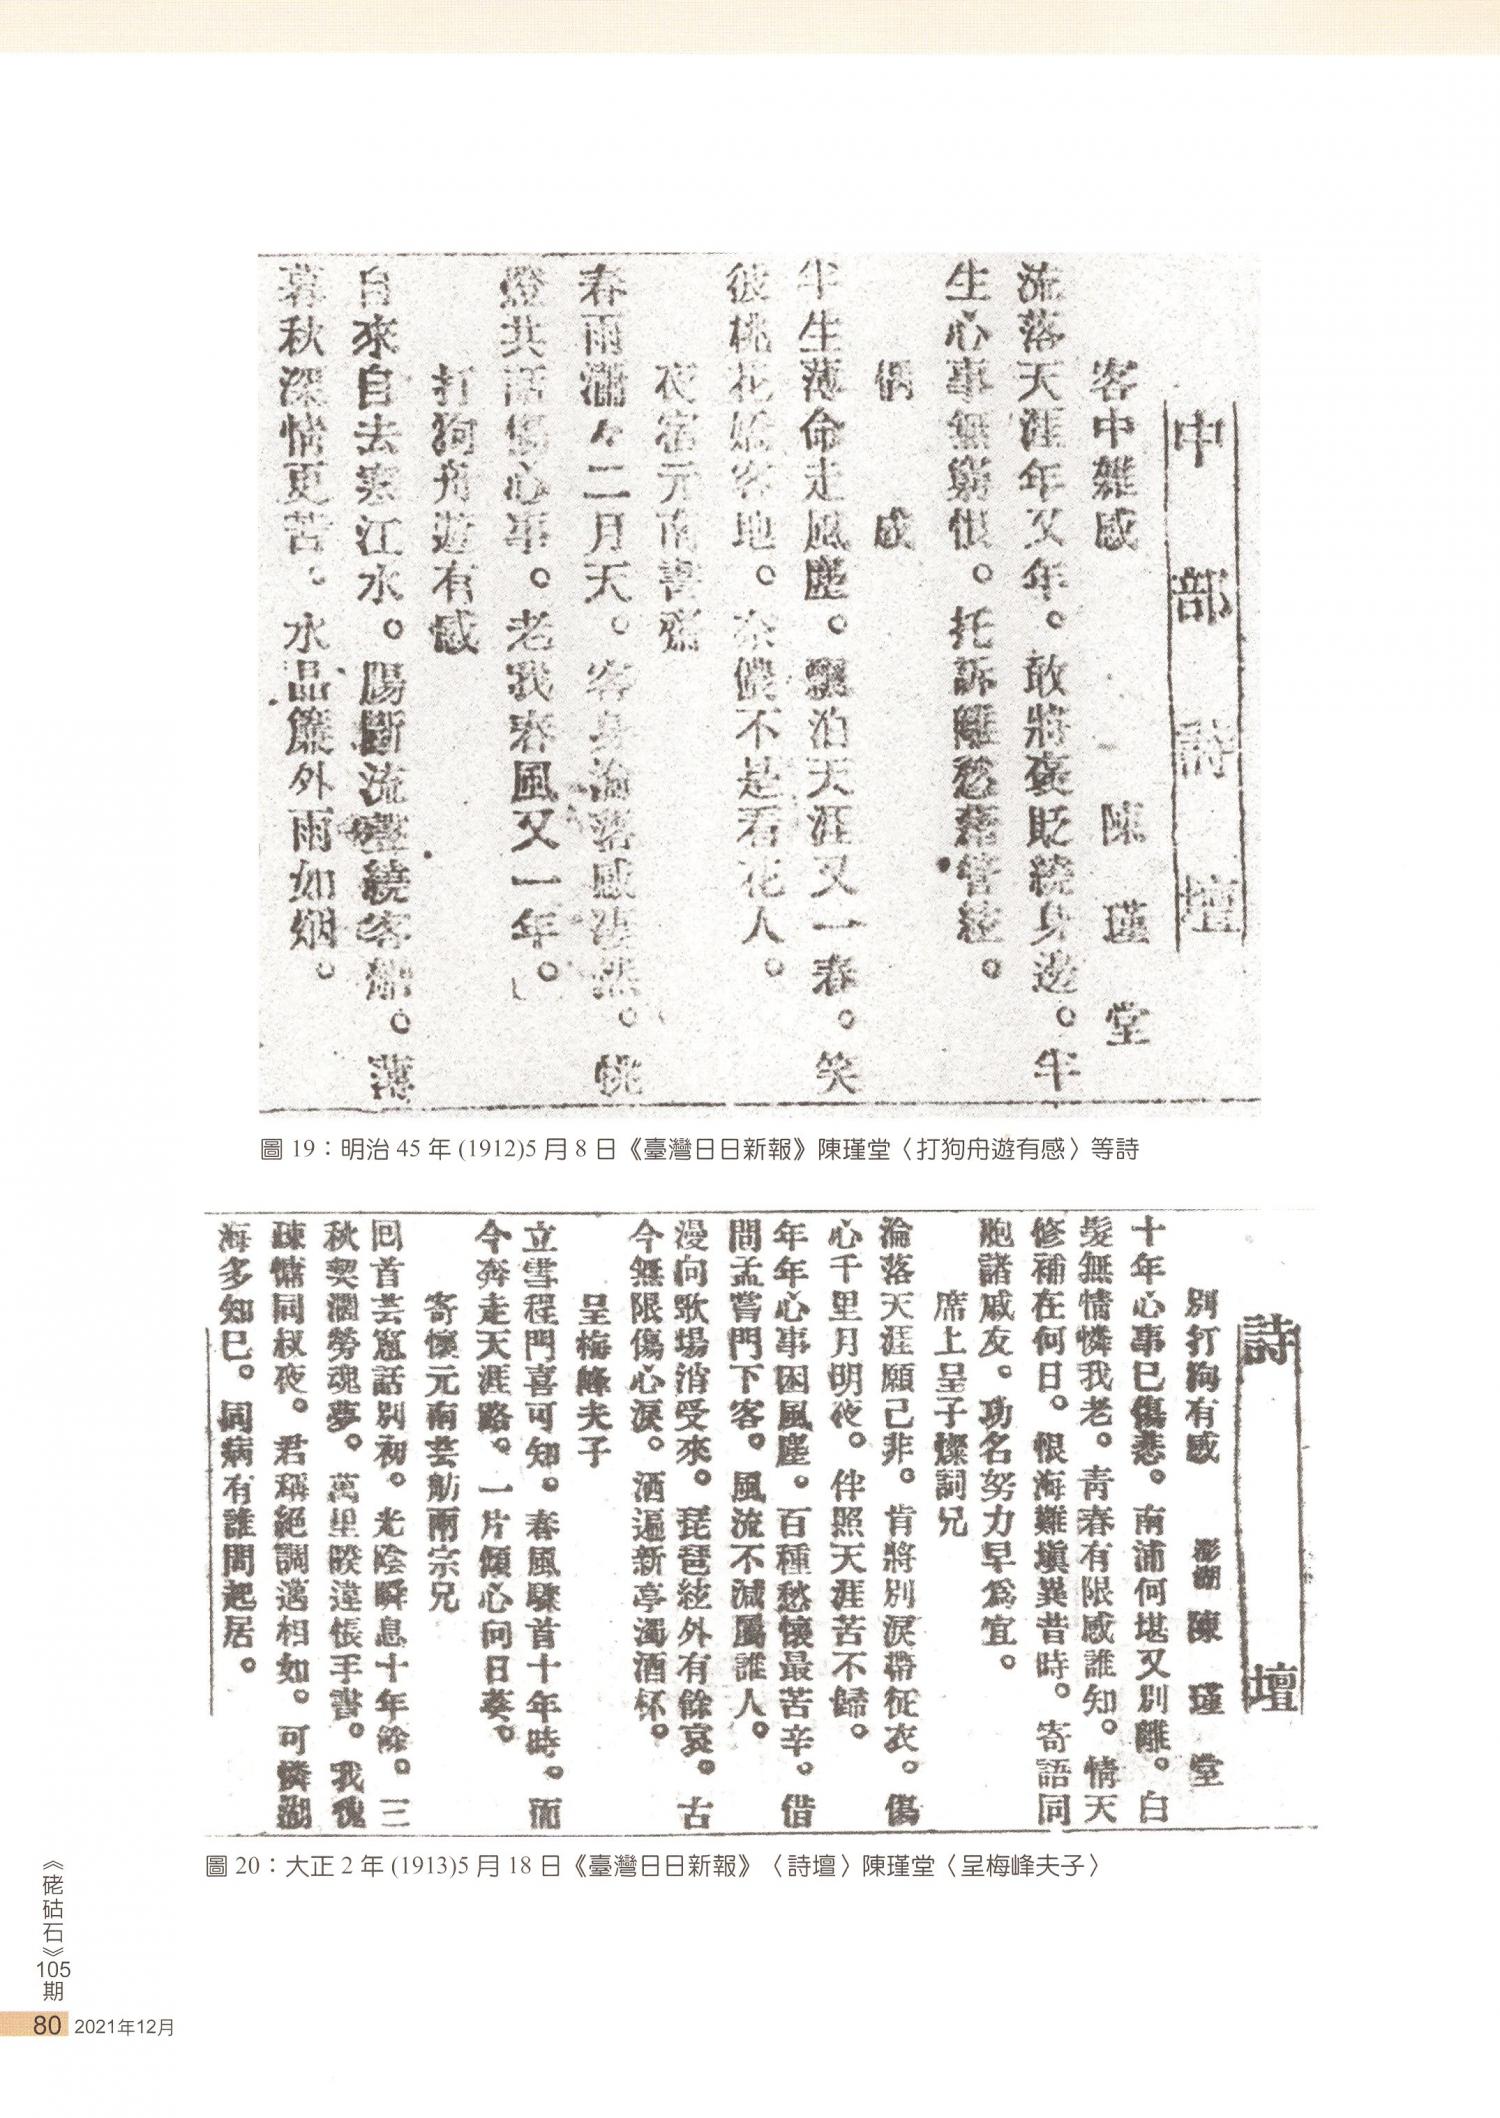 中部詩壇
客中雜感　陳瑾堂
流落天涯年又年。敢將褒貶繞身邊。半
生心事無窮恨。托訴離愁藉管絃。
偶成
半生薄命走風塵。飄泊天涯又一春。笑
彼桃花嬌客地。奈儂不是看花人。
夜宿元南書齋
春雨瀟々二月天。客身淪落感凄然。挑
燈共話傷心事。老我春風又一年。
打狗舟遊有感
自來自去寒江水。腸斷流聲繞客船。薄
暮秋深情更苦。水晶簾外雨如烟。
圖 19：明治 45 年 (1912)5 月 8 日《臺灣日日新報》陳瑾堂〈打狗舟遊有感〉等詩
詩壇
別打狗有感　澎湖 陳瑾堂
十年心事已傷悲。南浦何堪又別離。白
髮無情憐我老。青春有限感誰知。情天
修補在何日。恨海難塡異昔時。寄語同
胞諸戚友。功名努力早爲宜。
席上呈子燦詞兄
淪落天涯願已非。肯將別淚帶征衣。傷
心千里月明夜。伴照天涯苦不歸。
年年心事困風塵。百種愁懷最苦辛。借
問孟嘗門下客。風流不減屬誰人。
漫向歌場消受來。琵琶絃外有餘哀。古
今無限傷心淚。洒遍新亭濁酒杯。
呈梅峰夫子
立雪程門喜可知。春風驟首十年時。而
今奔走天涯路。一片傾心向日葵。
寄懷元南芸舫兩宗兄
回首芸窓話別初。光陰瞬息十年餘。三
秋契濶勞魂夢。萬里睽違悵手書。我愧
疎慵同叔夜。君稱絕調邁相如。可憐湖
海多知己。同病有誰問起居。
圖 20：大正 2 年 (1913)5 月 18 日《臺灣日日新報》〈詩壇〉陳瑾堂〈呈梅峰夫子〉
《硓𥑮石》105期
80 2021年12月